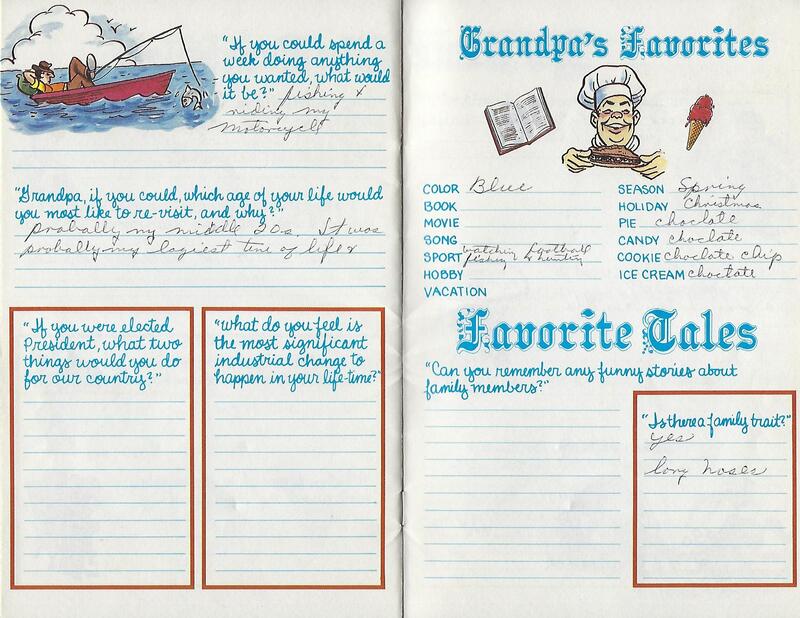 "If you could spend a
week doing anything
you wanted, what would
it be?" fishing &
riding my
motorcycle
"Grandpa, if you could, which age of your life would
you most like to re-visit, and why?"
probally my middle 20s. It was
probally my lagiest time of life
"If you were elected
President, what two
things would you do
for our country?"
"What do you feel is
the most significant
industrial change to
happen in your life-time?"
Grandpa's Favorites
COLOR Blue
BOOK
MOVIE
SONG
SPORT watching football
fishing & hunting
HOBBY
VACATION
SEASON Spring
HOLIDAY Christmas
PIE choclate
CANDY choclate
COOKIE choclate chip
ICE CREAM choclate
Favorite Tales
"Can you remember any funny stories about
family members?"
"Is there a family trait?"
yes
long noses